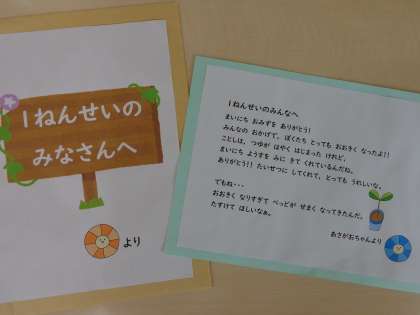 1ねんせいの
みなさんへ
より
1ねんせいのみんなへ
まいにち おみずを ありがとう!
みんなの おかげで、ぼくたち とっても おおきく なったよ!!
ことしは、つゆが はやく はじまった けれど、
まいにち ようすを みに きて くれているんだね。
ありがとう!! たいせつに してくれて、とっても うれしいな。
でもね・・・
おおきく なりすぎて べっどが せまく なってきたんだ。
たすけて ほしいなぁ。
あさがおちゃんより